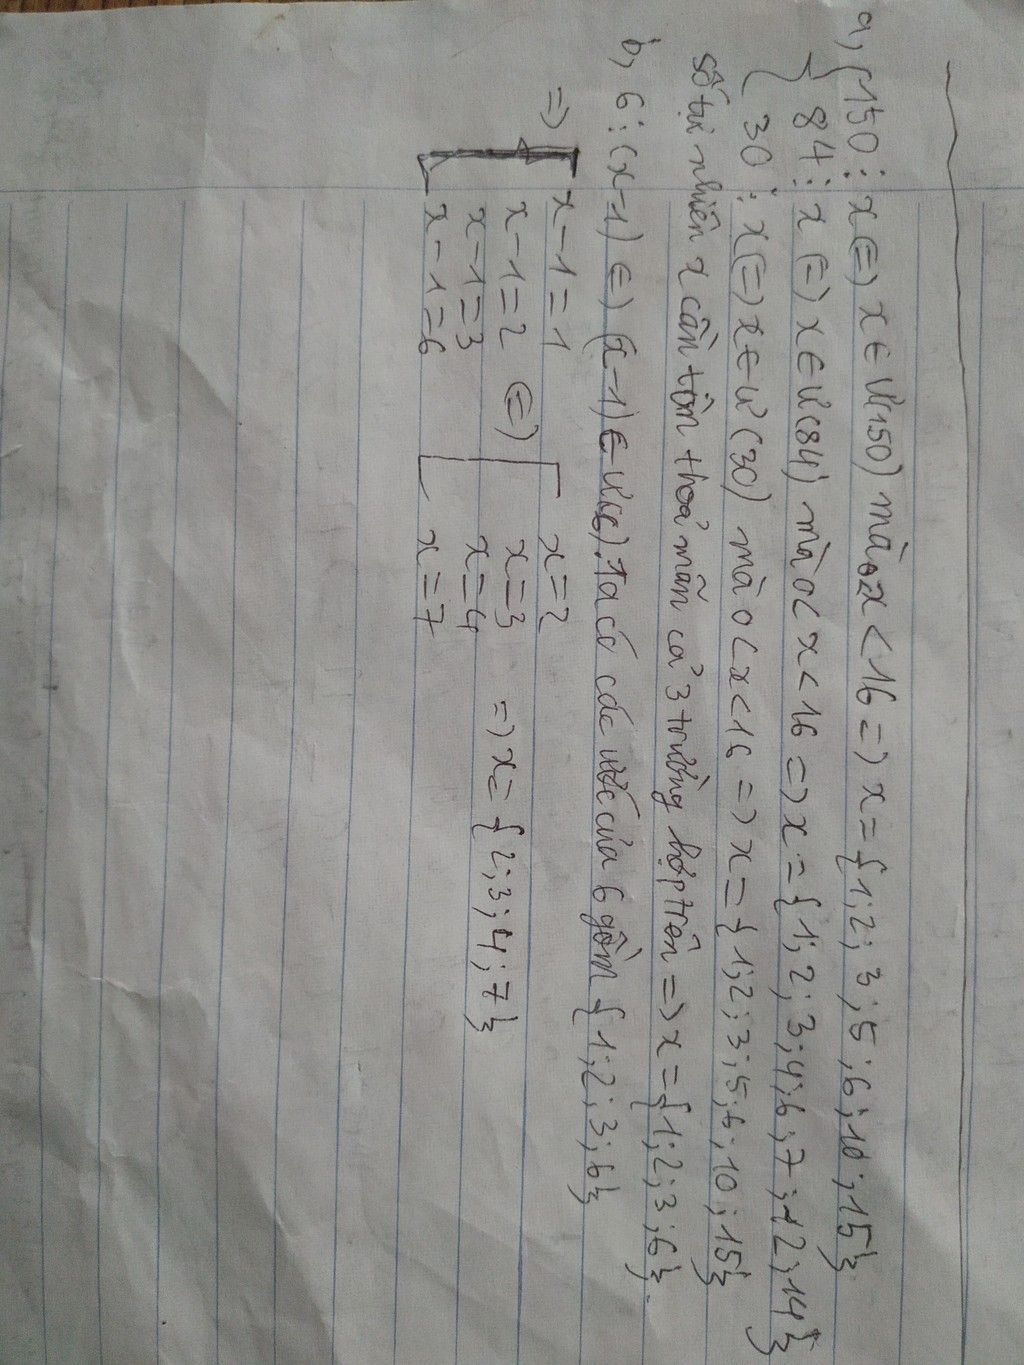 a, { 150 ⋮ x (=) x ∈ Ư(150) mà 0<x<16 => x = {1; 2; 3; 5; 6; 10; 15}
84 ⋮ x (=) x ∈ Ư(84) mà 0<x<16 => x = {1; 2; 3; 4; 6; 7; 12; 14}
30 ⋮ x (=) x ∈ Ư(30) mà 0<x<16 => x = {1; 2; 3; 5; 6; 10; 15}
số tự nhiên x cần tìm thoả mãn cả 3 trường hợp trên => x = {1; 2; 3; 6}.
b, 6 ⋮ (x-1) (=) (x-1) ∈ Ư(6). Ta có các ước của 6 gồm {1; 2; 3; 6}
=> [ x-1=1 [ x=2
x-1=2 (=) x=3
x-1=3 x=4 => x = {2; 3; 4; 7}
x-1=6 x=7